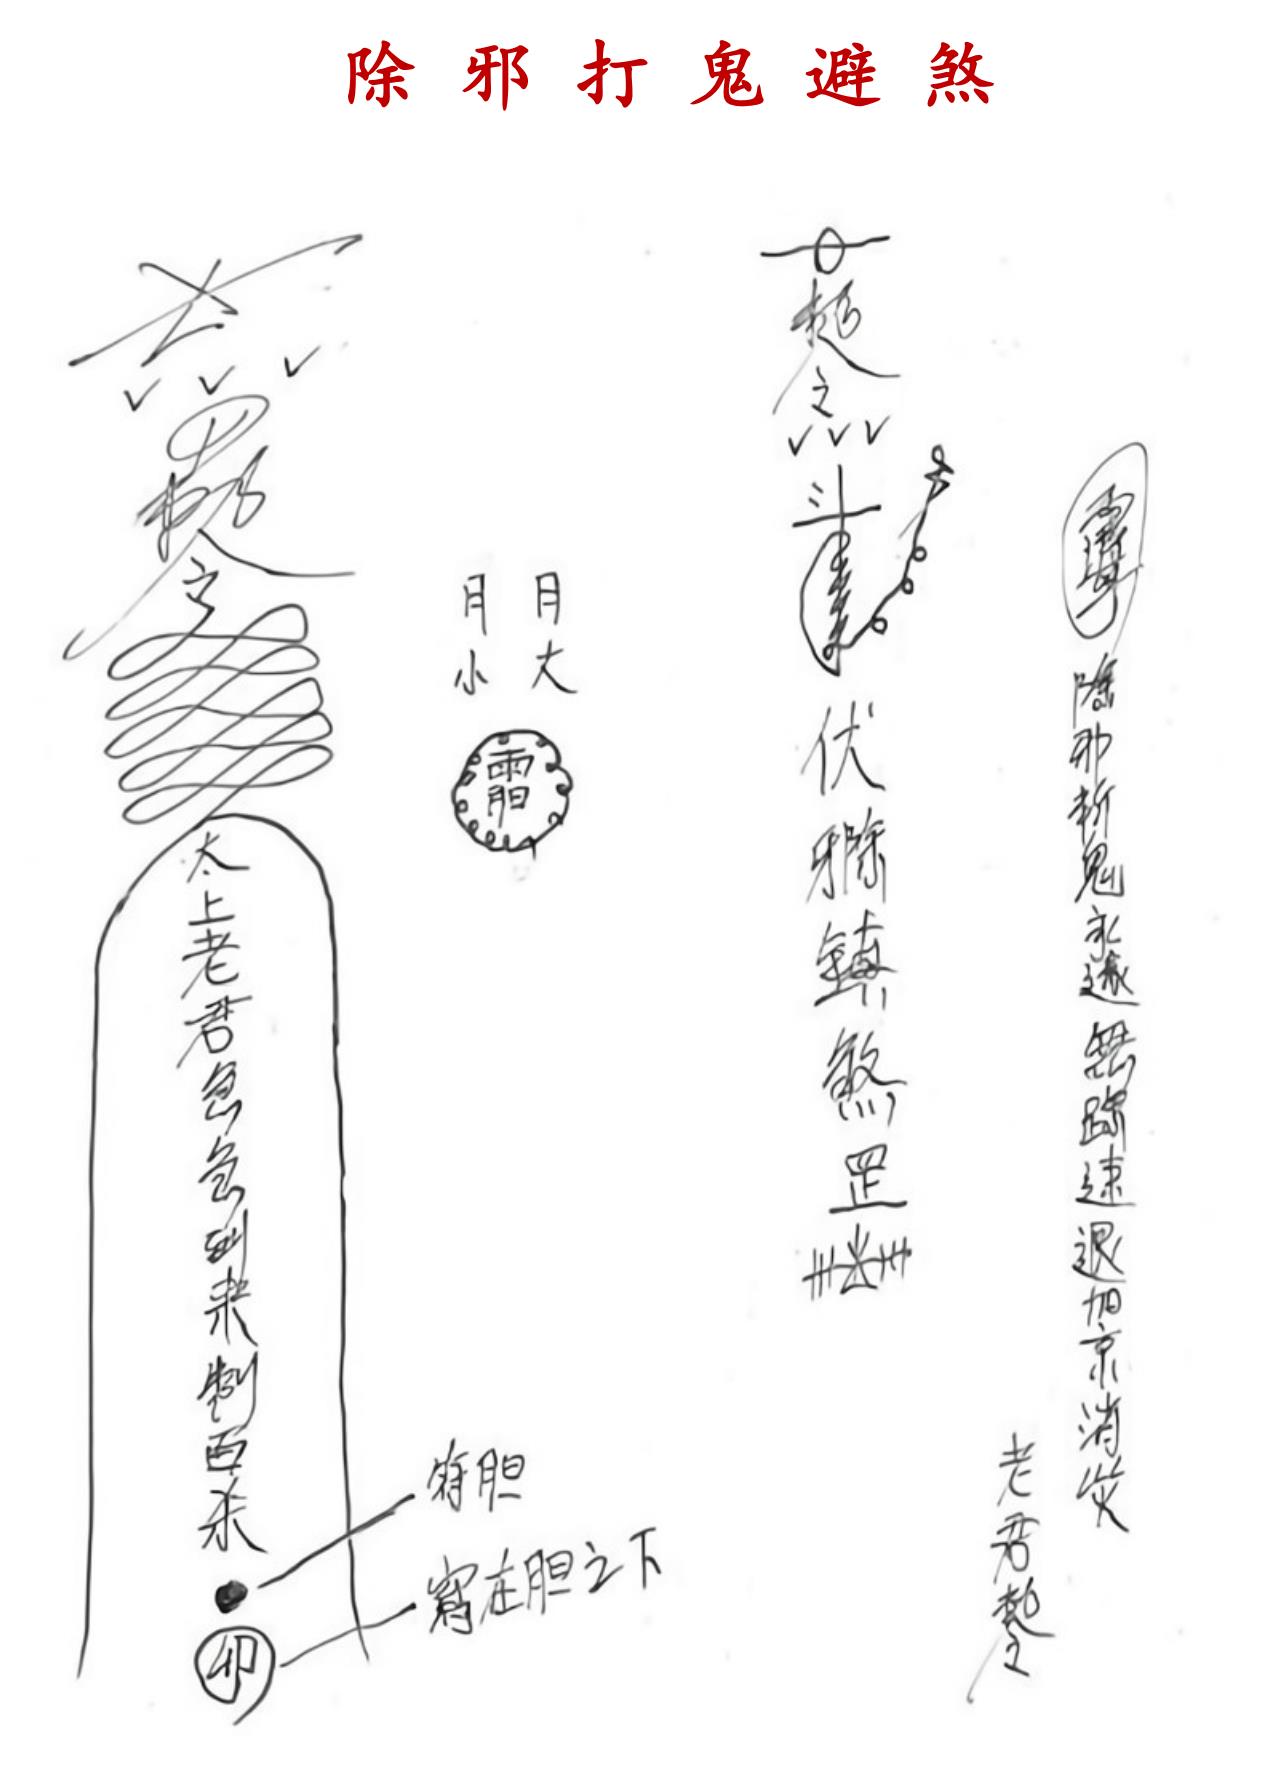 除邪打鬼避煞
敕令
太上老君急急到來制百杀
印
符胆
寫在胆之下
月大
月小
敕令
斗
伏
邪除
鎮
煞
罡
除邪斬鬼永遠無踪速退加京消災
老君敕令